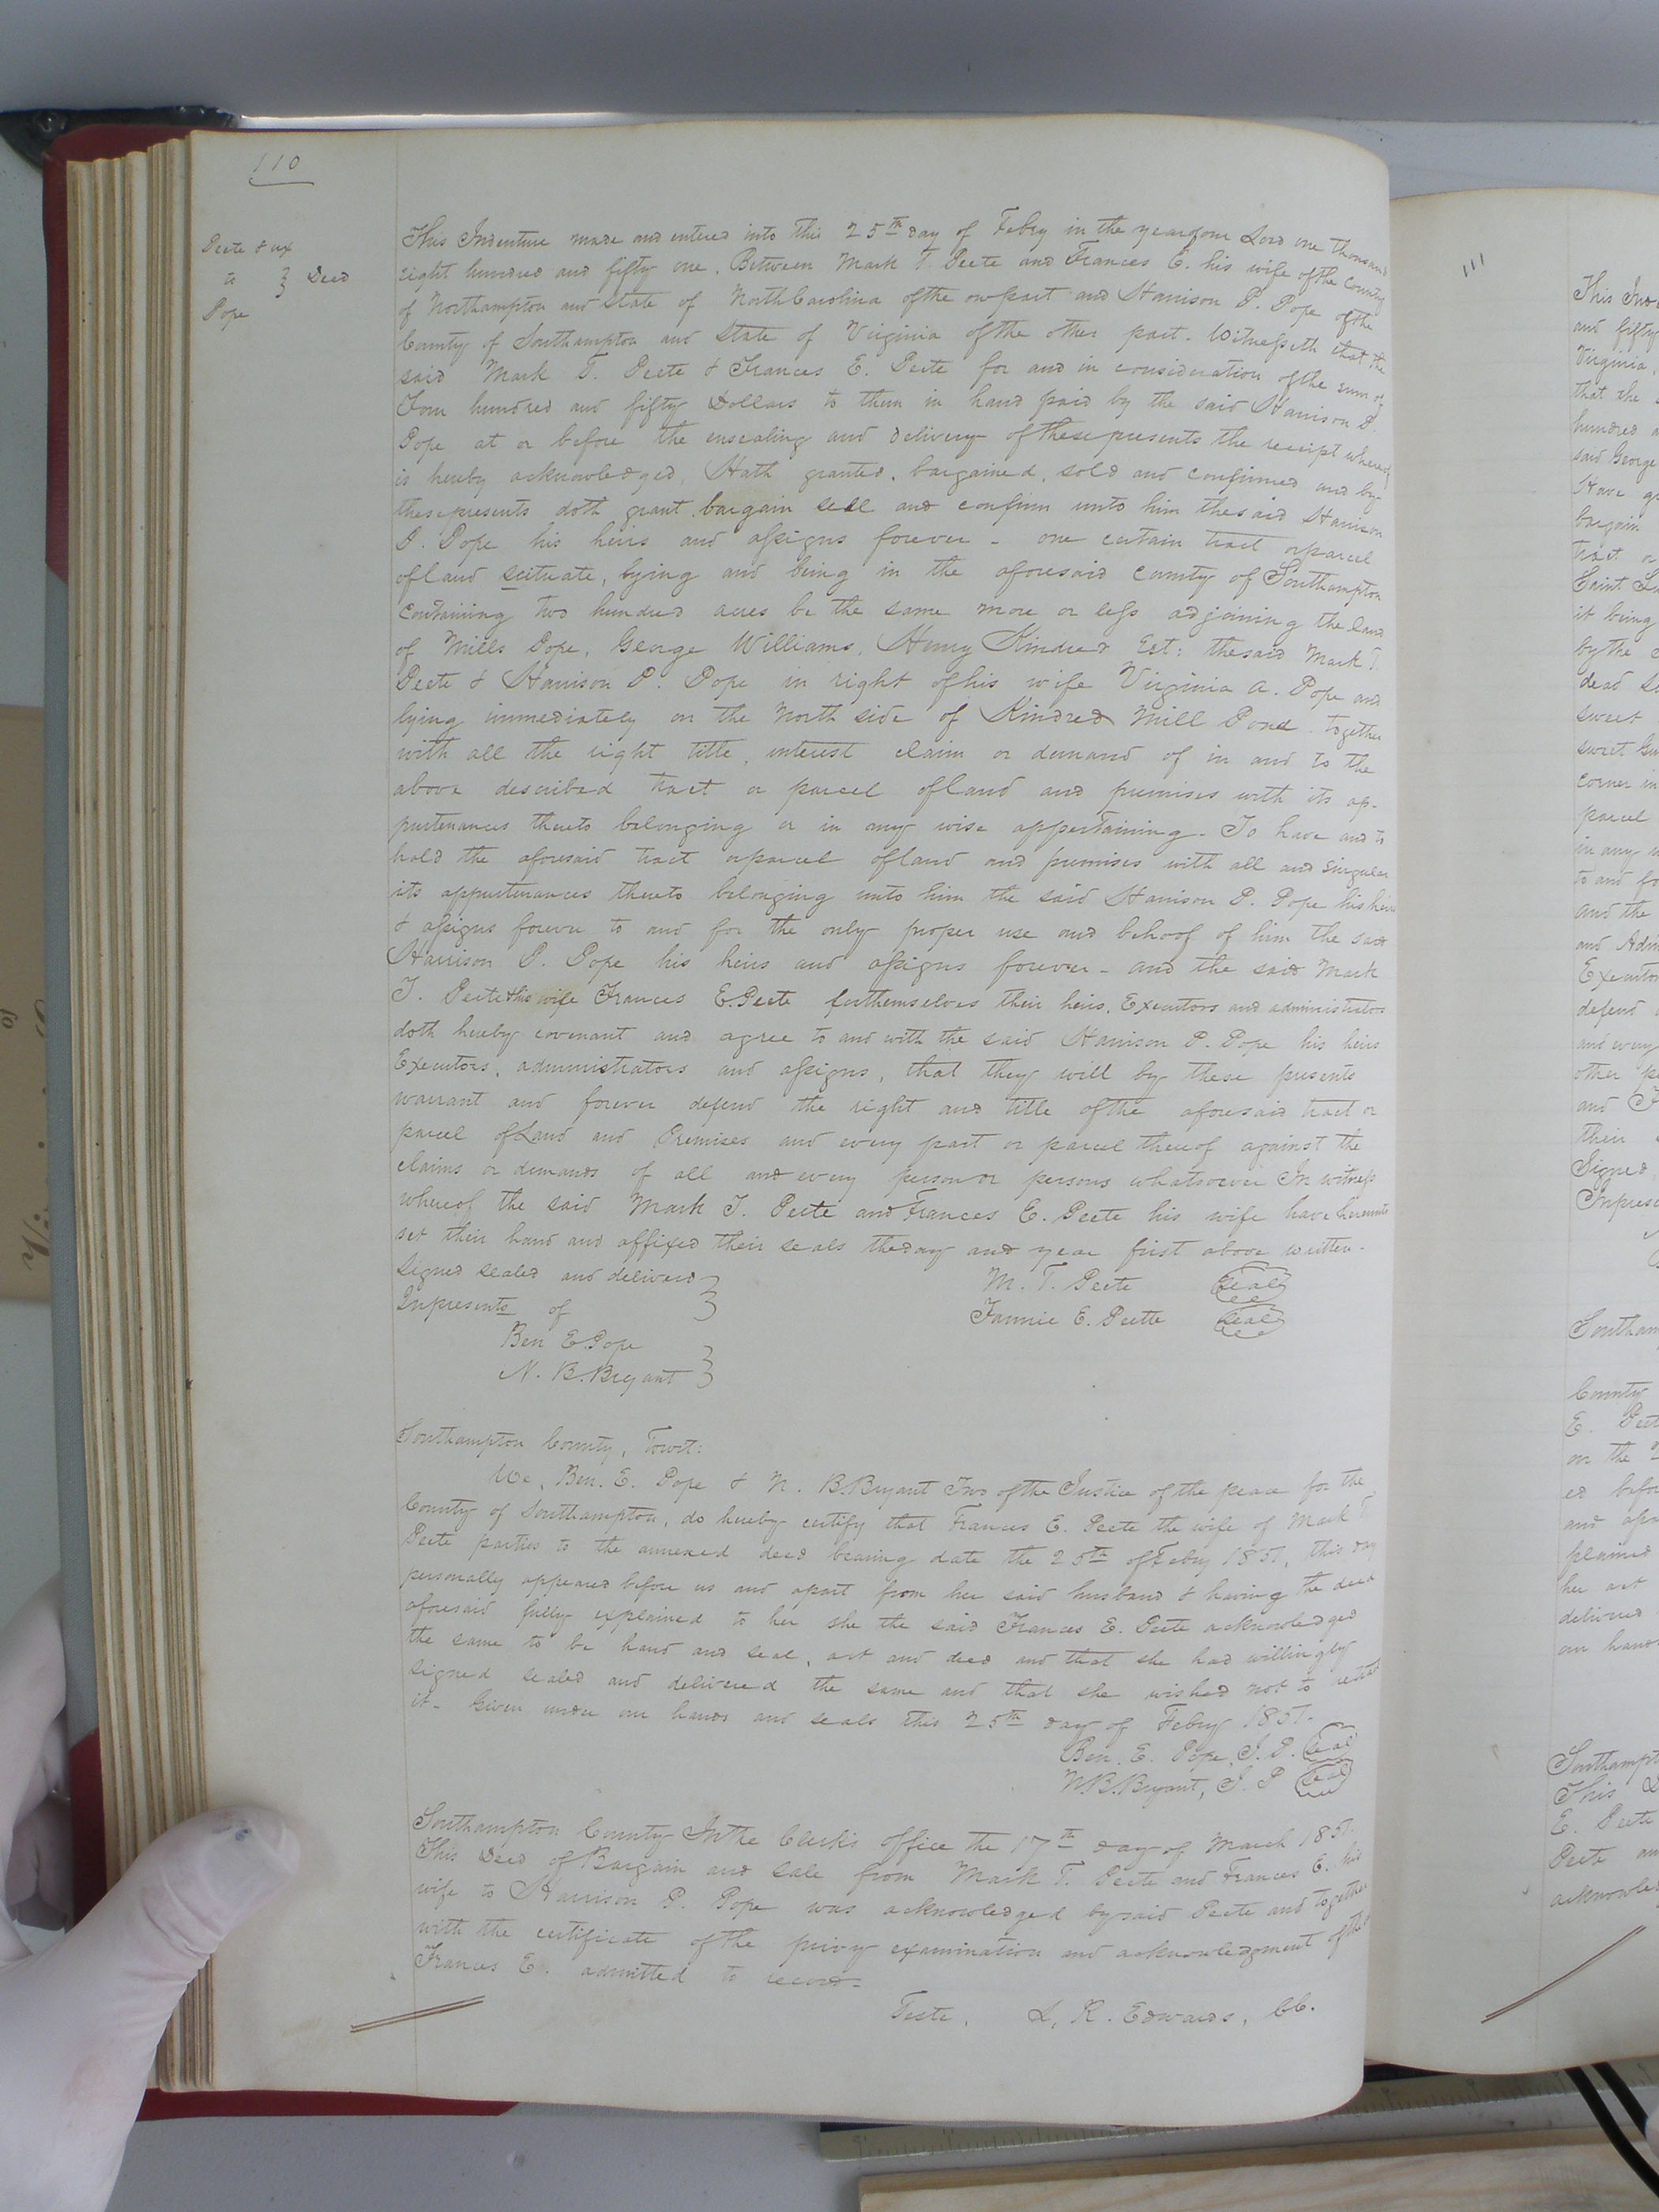 110
Peete & ux
to } Deed
Pope
This Indenture made and entered into this 25th day of Febry in the year of our Lord one thousand
eight hundred and fifty one, Between Mark T. Peete and Frances E. his wife of the County
of Northampton and State of North Carolina of the one part and Harrison P. Pope of the
County of Southampton and State of Virginia of the other part. Witnesseth that the
said Mark T. Peete & Frances E. Peete for and in consideration of the sum of
Four hundred and fifty Dollars to them in hand paid by the said Harrison P.
Pope at or before the ensealing and delivery of these presents the receipt whereof
is hereby acknowledged, Hath granted, bargained, sold and confirmed and by
these presents doth grant bargain sell and confirm unto him the said Harrison
P. Pope his heirs and assigns forever - one certain tract or parcel
of land scituate, lying and being in the aforesaid County of Southampton
containing two hundred acres be the same more or less adjoining the land
of Mills Pope, George Williams, Henry Kindred Est: the said Mark T.
Peete & Harrison P. Pope in right of his wife Virginia A. Pope and
lying immediately on the North side of Kindred Mill Pond together
with all the right title, interest claim or demand of in and to the
above described tract or parcel of land and premises with its ap-
purtenances thereto belonging or in any wise appertaining. To have and to
hold the aforesaid tract or parcel of land and premises with all and singular
its appurtenances thereto belonging unto him the said Harrison P. Pope his heirs
& assigns forever to and for the only proper use and behoof of him the said
Harrison P. Pope his heirs and assigns forever - and the said Mark
T. Peete & his wife Frances E. Peete for themselves their heirs, Executors and administrators
doth hereby covenant and agree to and with the said Harrison P. Pope his heirs
Executors, administrators and assigns, that they will by these presents
warrant and forever defend the right and title of the aforesaid tract or
parcel of Land and Premises and every part or parcel thereof against the
claims or demands of all and every person or persons whatsoever In witness
whereof the said Mark T. Peete and Frances E. Peete his wife have hereunto
set their hand and affixed their seals the day and year first above written.
Signed sealed and delivered } M. T. Peete Seal
In presents of } Fannie E. Peete Seal
Ben E. Pope
N. B. Bryant }
Southampton County, Towit:
We, Ben. E. Pope & N. B. Bryant Two of the Justice of the peace for the
County of Southampton, do hereby certify that Frances E. Peete the wife of Mark T.
Peete parties to the annexed deed bearing date the 25th of Febry 1851, this day
personally appeared before us and apart from her said husband & having the deed
aforesaid fully explained to her she the said Frances E. Peete acknowledged
the same to be hand and seal, act and deed and that she had willingly
signed sealed and delivered the same and that she wished not to retract
it. Given under our hands and seals this 25th day of Febry 1851.
Ben. E. Pope, J. P. Seal
N. B. Bryant, J. P Seal
Southampton County In the Clerk's office the 17th day of March 1851.
This Deed of Bargain and sale from Mark T. Peete and Frances E. his
wife to Harrison P. Pope was acknowledged by said Peete and together
with the certificate of the privy examination and acknowledgment of the
Frances E. admitted to record.
Teste, L, R. Edwards, CC.
111
and fifty
Virginia,
that the
hundred
said George
Have
bargain
tract
it being
by the
dead
sweet
sweet
corner in
parcel
in any
to and
and the
and
defend
and every
other
and
their
Signed
County
E.
on the
ed
and
plained
her act
delivered
our
This
E. Peete
Peete